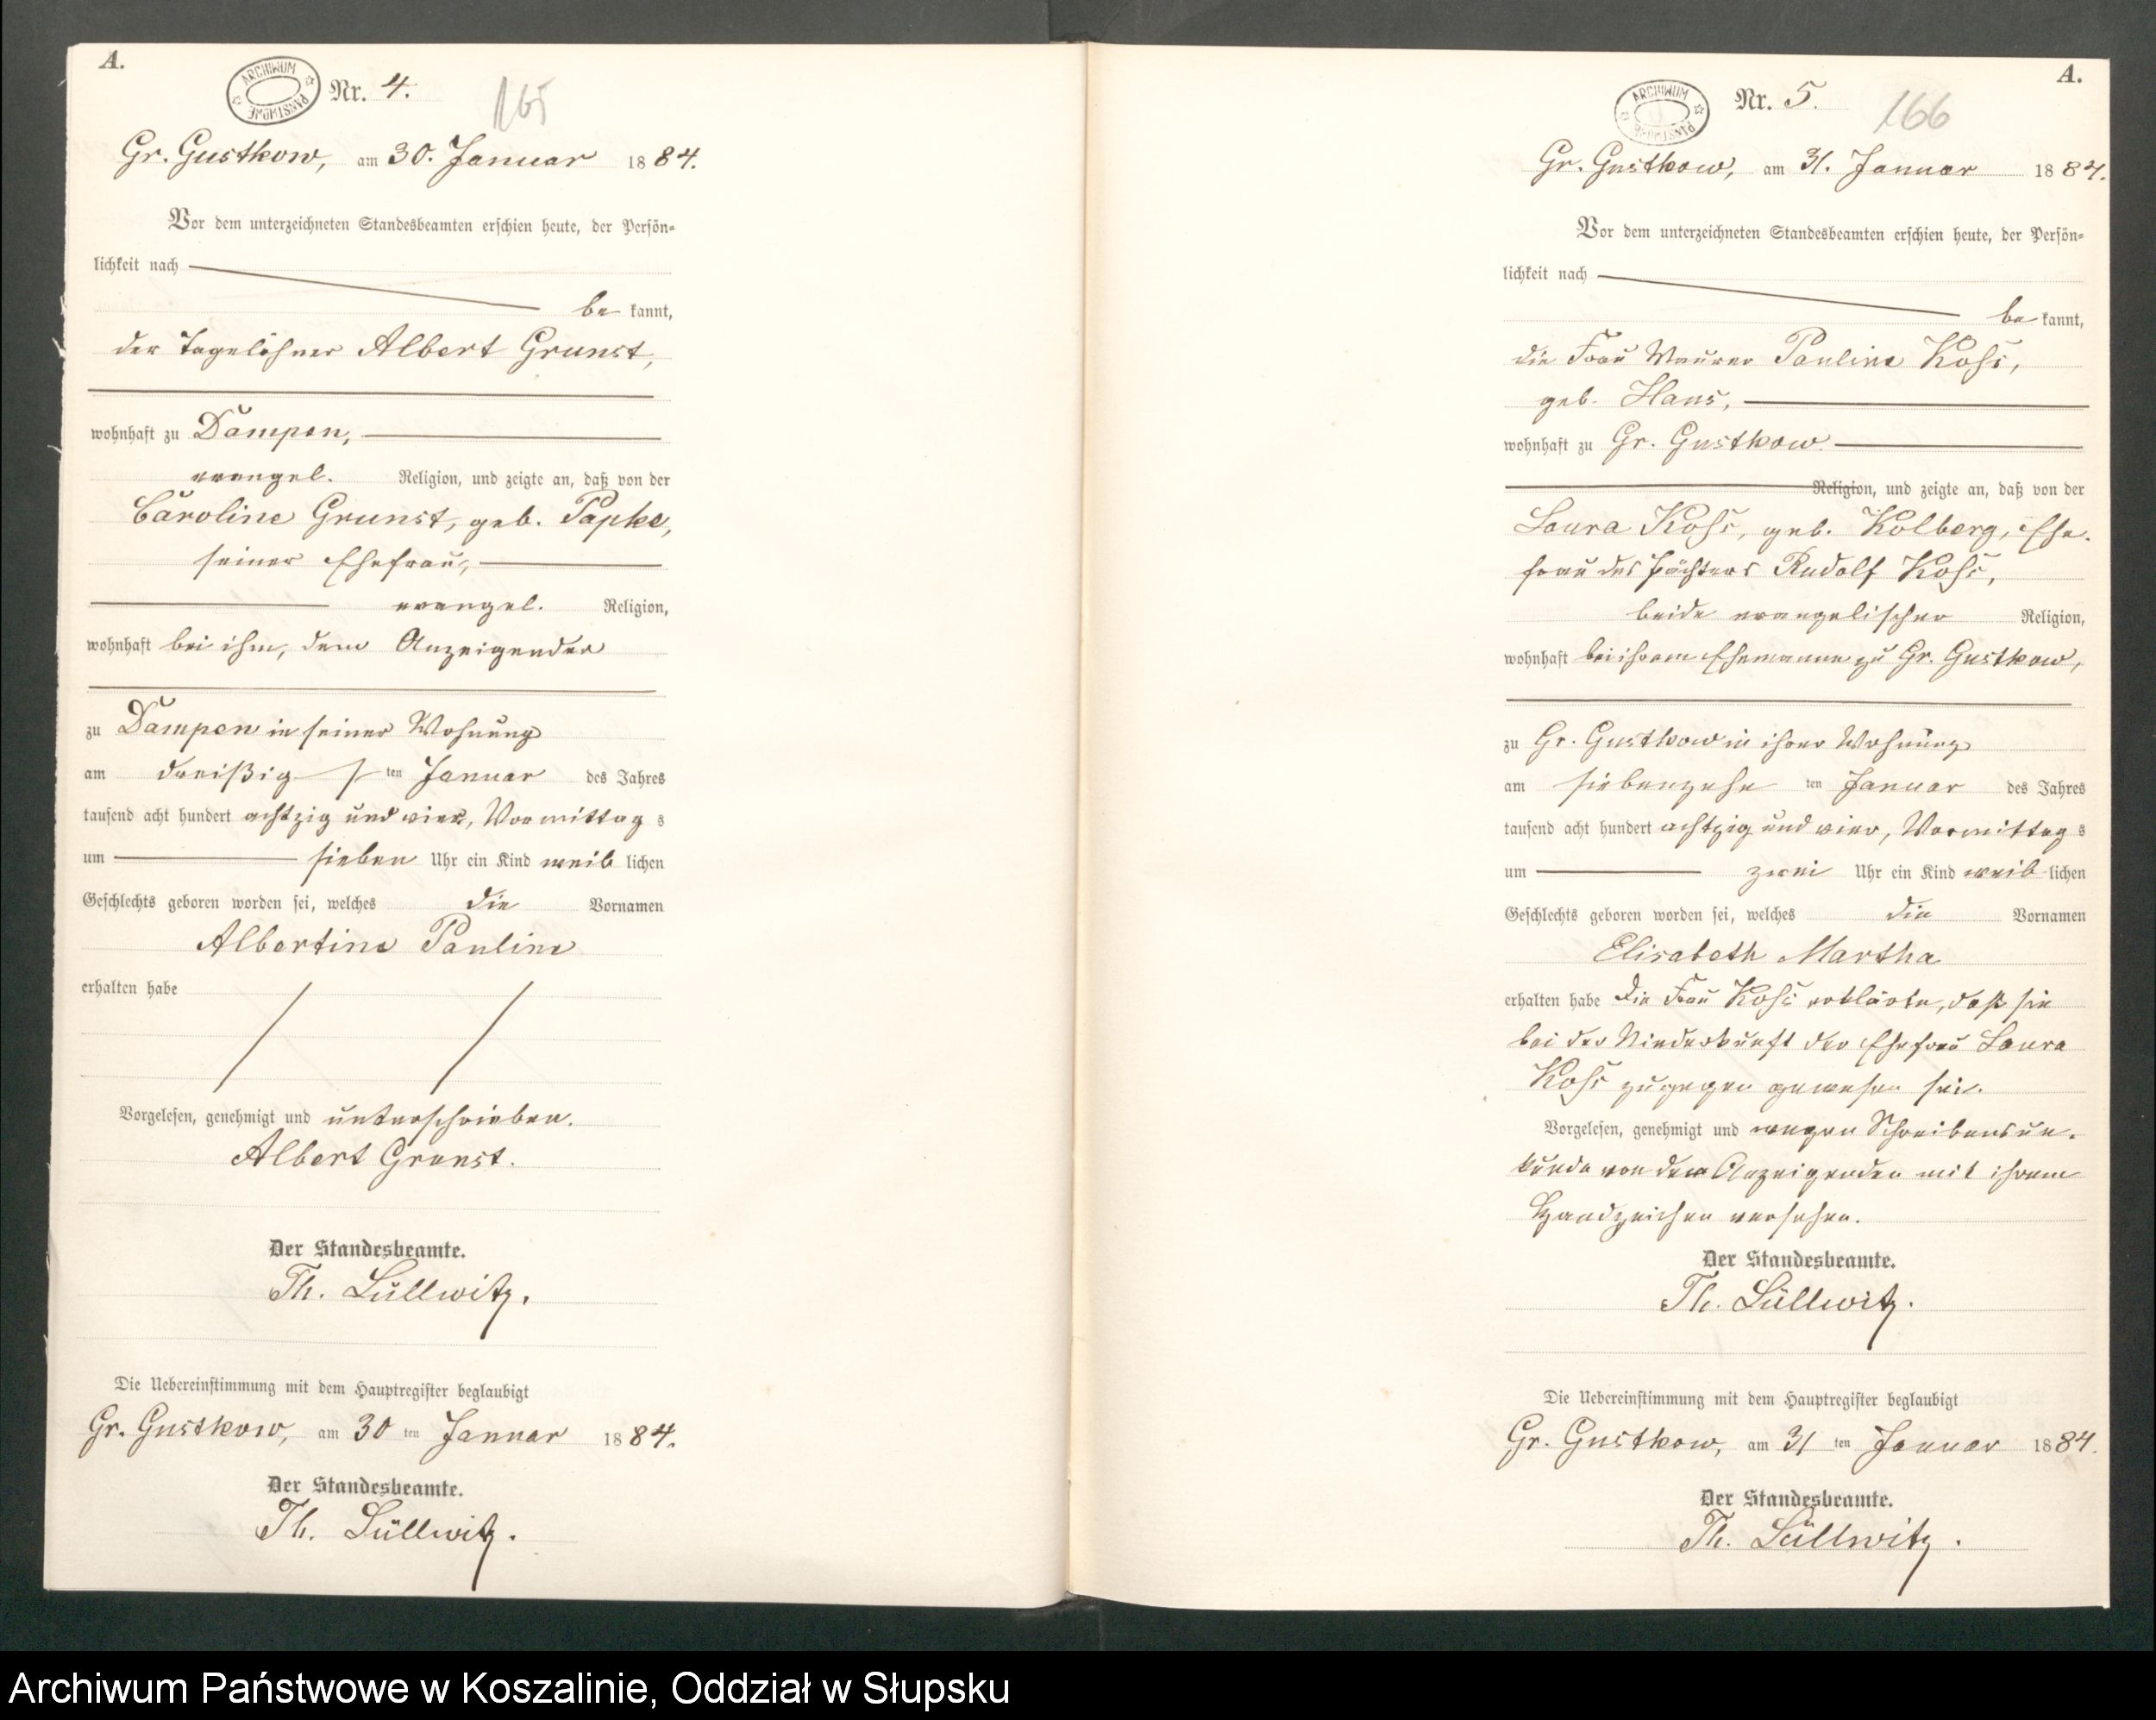 A.
ARCHIWUM PAŃSTWOWE
Nr. 4.
165
Gr. Gustkow, am 30. Januar 1884.
Vor dem unterzeichneten Standesbeamten erschien heute, der Persön-
lichkeit nach
be kannt,
der Tagelöhner Albert Grunst,
wohnhaft zu Dampen,
evangel. Religion, und zeigte an, daß von der
Caroline Grunst, geb. Papke,
seiner Ehefrau,
evangel. Religion,
wohnhaft bei ihm, dem Anzeigenden
zu Dampen in seiner Wohnung
am dreißig ten Januar des Jahres
tausend acht hundert achtzig und vier, Vormittag s
um sieben Uhr ein Kind weib lichen
Geschlechts geboren worden sei, welches die Vornamen
Albertine Pauline
erhalten habe
Vorgelesen, genehmigt und unterschrieben.
Albert Grunst.
Der Standesbeamte.
Th. Lüllwitz.
Die Uebereinstimmung mit dem Hauptregister beglaubigt
Gr. Gustkow, am 30 ten Januar 1884.
Der Standesbeamte.
Th. Lüllwitz.
A.
ARCHIWUM PAŃSTWOWE
Nr. 5.
166
Gr. Gustkow, am 31. Januar 1884.
Vor dem unterzeichneten Standesbeamten erschien heute, der Persön-
lichkeit nach
be kannt,
die Frau Maurer Pauline Kohs,
geb. Haus,
wohnhaft zu Gr. Gustkow
Religion, und zeigte an, daß von der
Laura Kohs, geb. Kolberg, Ehe-
frau des Pächters Rudolf Kohs,
beide evangelischer Religion,
wohnhaft bei ihrem Ehemanne zu Gr. Gustkow,
zu Gr. Gustkow in ihrer Wohnung
am siebenzehn ten Januar des Jahres
tausend acht hundert achtzig und vier, Vormittag s
um zwei Uhr ein Kind weib lichen
Geschlechts geboren worden sei, welches die Vornamen
Elisabeth Martha
erhalten habe Die Frau Kohs erklärte, daß sie
bei der Niederkunft der Ehefrau Laura
Kohs zugegen gewesen sei.
Vorgelesen, genehmigt und wegen Schreibensun-
kunde von der Anzeigenden mit ihrem
Handzeichen versehen.
Der Standesbeamte.
Th. Lüllwitz.
Die Uebereinstimmung mit dem Hauptregister beglaubigt
Gr. Gustkow, am 31 ten Januar 1884.
Der Standesbeamte.
Th. Lüllwitz.
Archiwum Państwowe w Koszalinie, Oddział w Słupsku